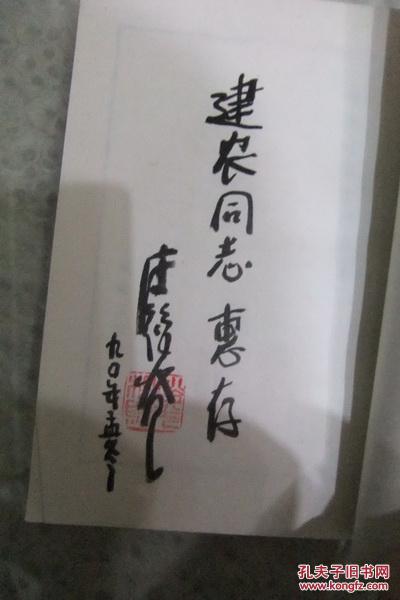 建农同志 惠存
九〇年孟冬
孔夫子旧书网
www.kongfz.com